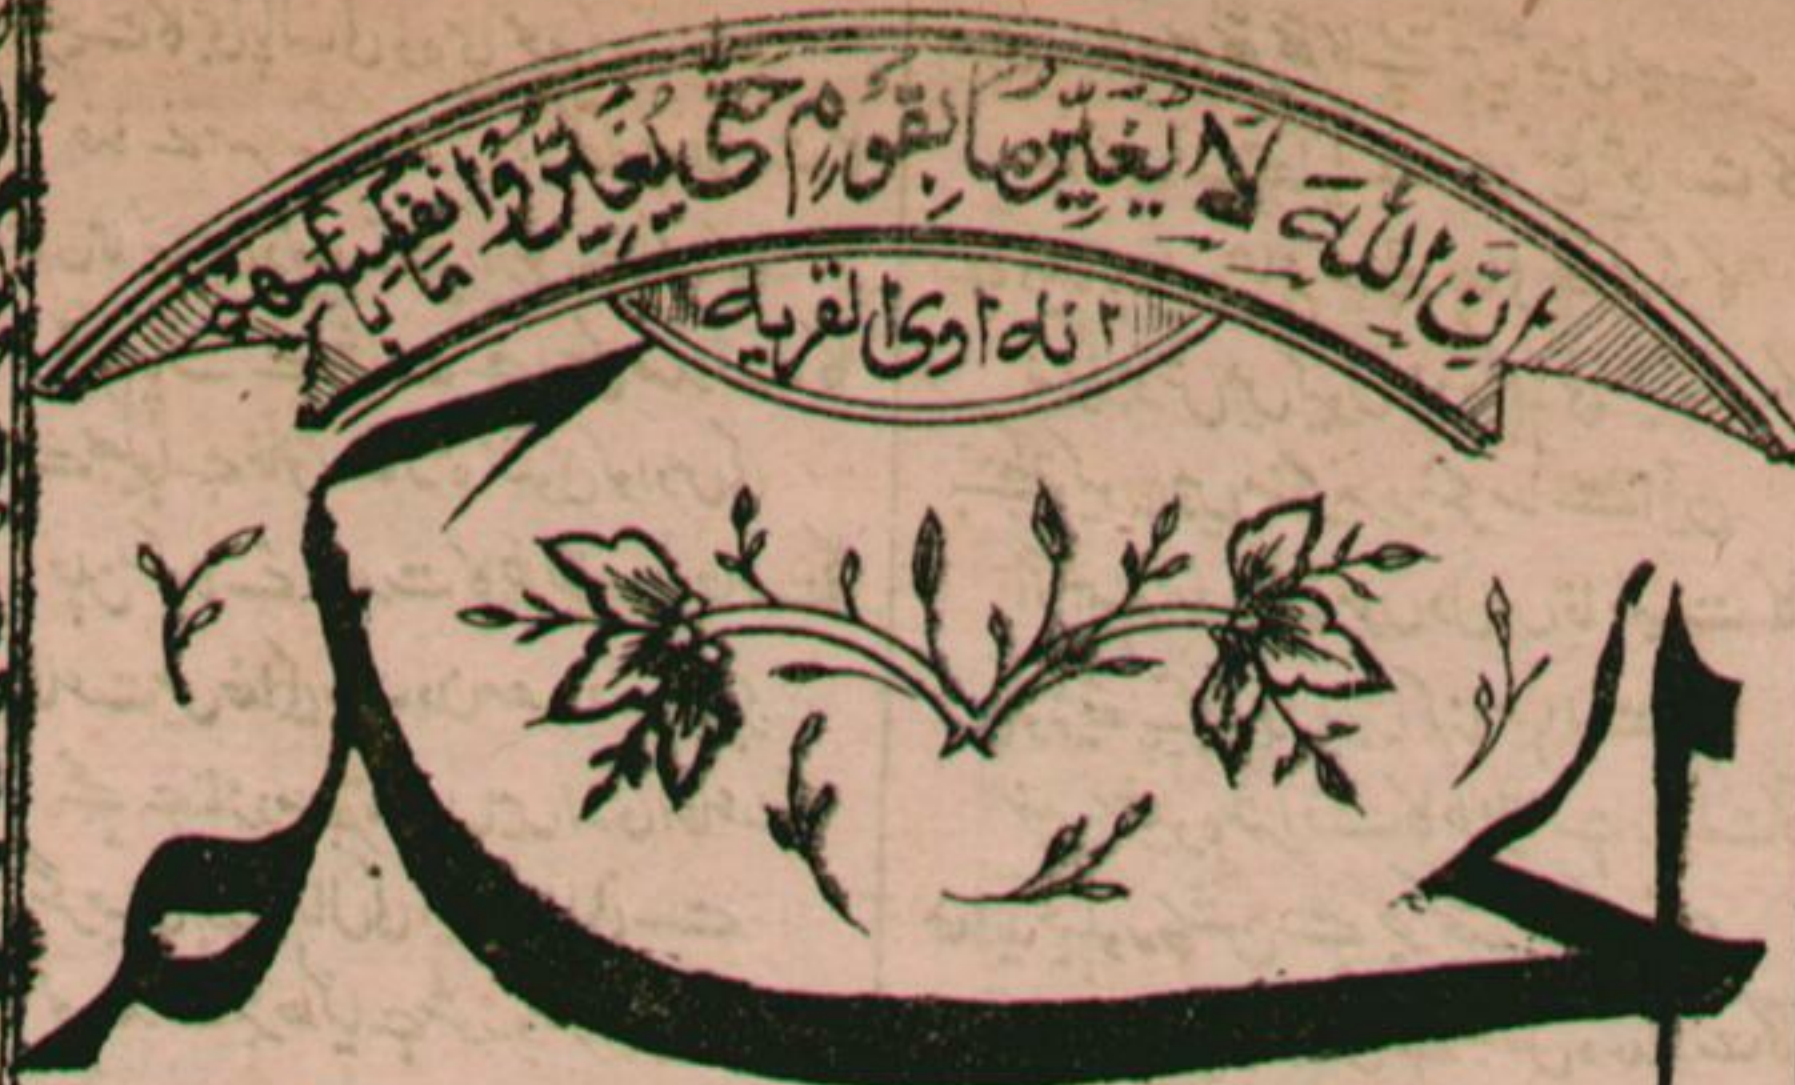 اِنَّ اللّٰهَ لَا يُغَيِّرُ مَا بِقَوْمٍ حَتّٰى يُغَيِّرُوْا مَا بِاَنْفُسِهِمْ
انه اوی القریه
الحکم